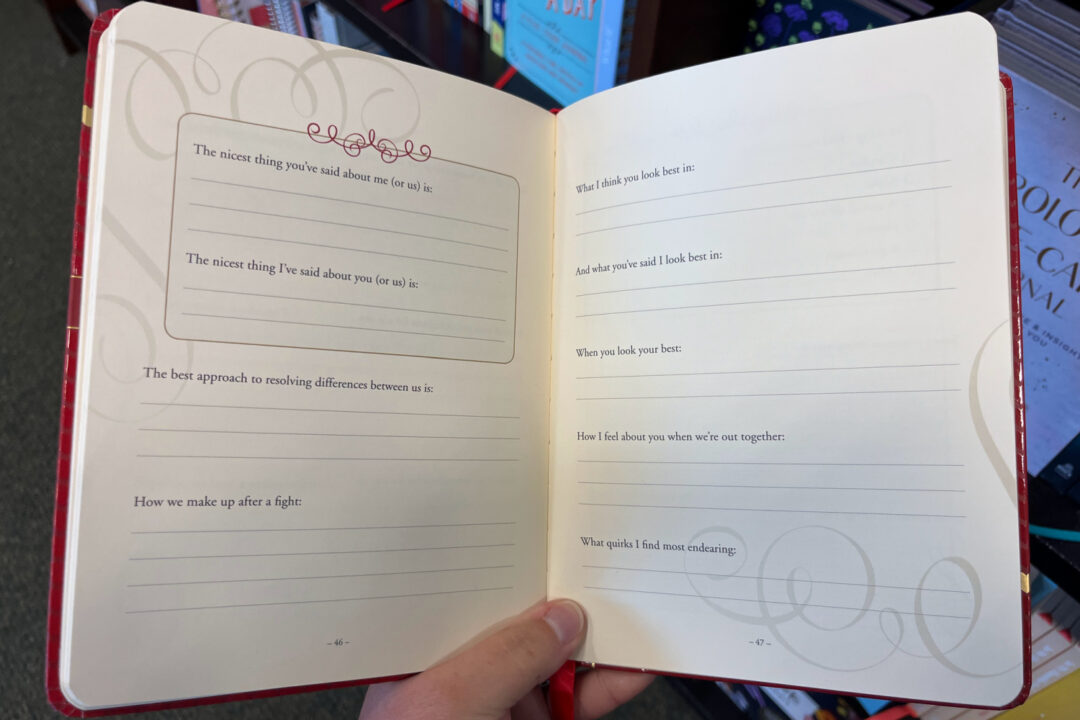 The nicest thing you've said about me (or us) is:
The nicest thing I've said about you (or us) is:
The best approach to resolving differences between us is:
How we make up after a fight:
– 46 –
What I think you look best in:
And what you've said I look best in:
When you look your best:
How I feel about you when we're out together:
What quirks I find most endearing:
– 47 –
A DAY
YOU